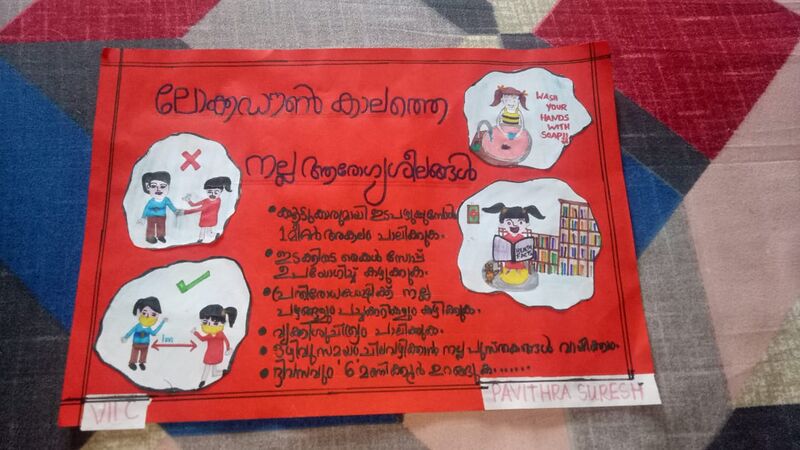 ലോക്ഡൗൺ കാലത്തെ
നല്ല ആരോഗ്യശീലങ്ങൾ
WASH
YOUR
HANDS
WITH
SOAP!!
• കൂട്ടുകരുമായി ഇടപഴകുമ്പോൾ
1മീറ്റർ അകലം പാലിക്കുക.
• ഇടക്കിടെ കൈകൾ സോപ്പ്
ഉപയോഗിച്ച് കഴുകുക.
• പ്രതിരോധശേഷിക്ക് നല്ല
പഴങ്ങളും പച്ചക്കറികളും കഴിക്കുക.
• വ്യക്തിശുചിത്വം പാലിക്കുക.
• ഒഴിവുസമയം ചിലവഴിക്കാൻ നല്ല പുസ്തകങ്ങൾ വായിക്കുക.
• ദിവസവും '6' മണിക്കൂർ ഉറങ്ങുക......
1m
VII C
PAVITHRA SURESH